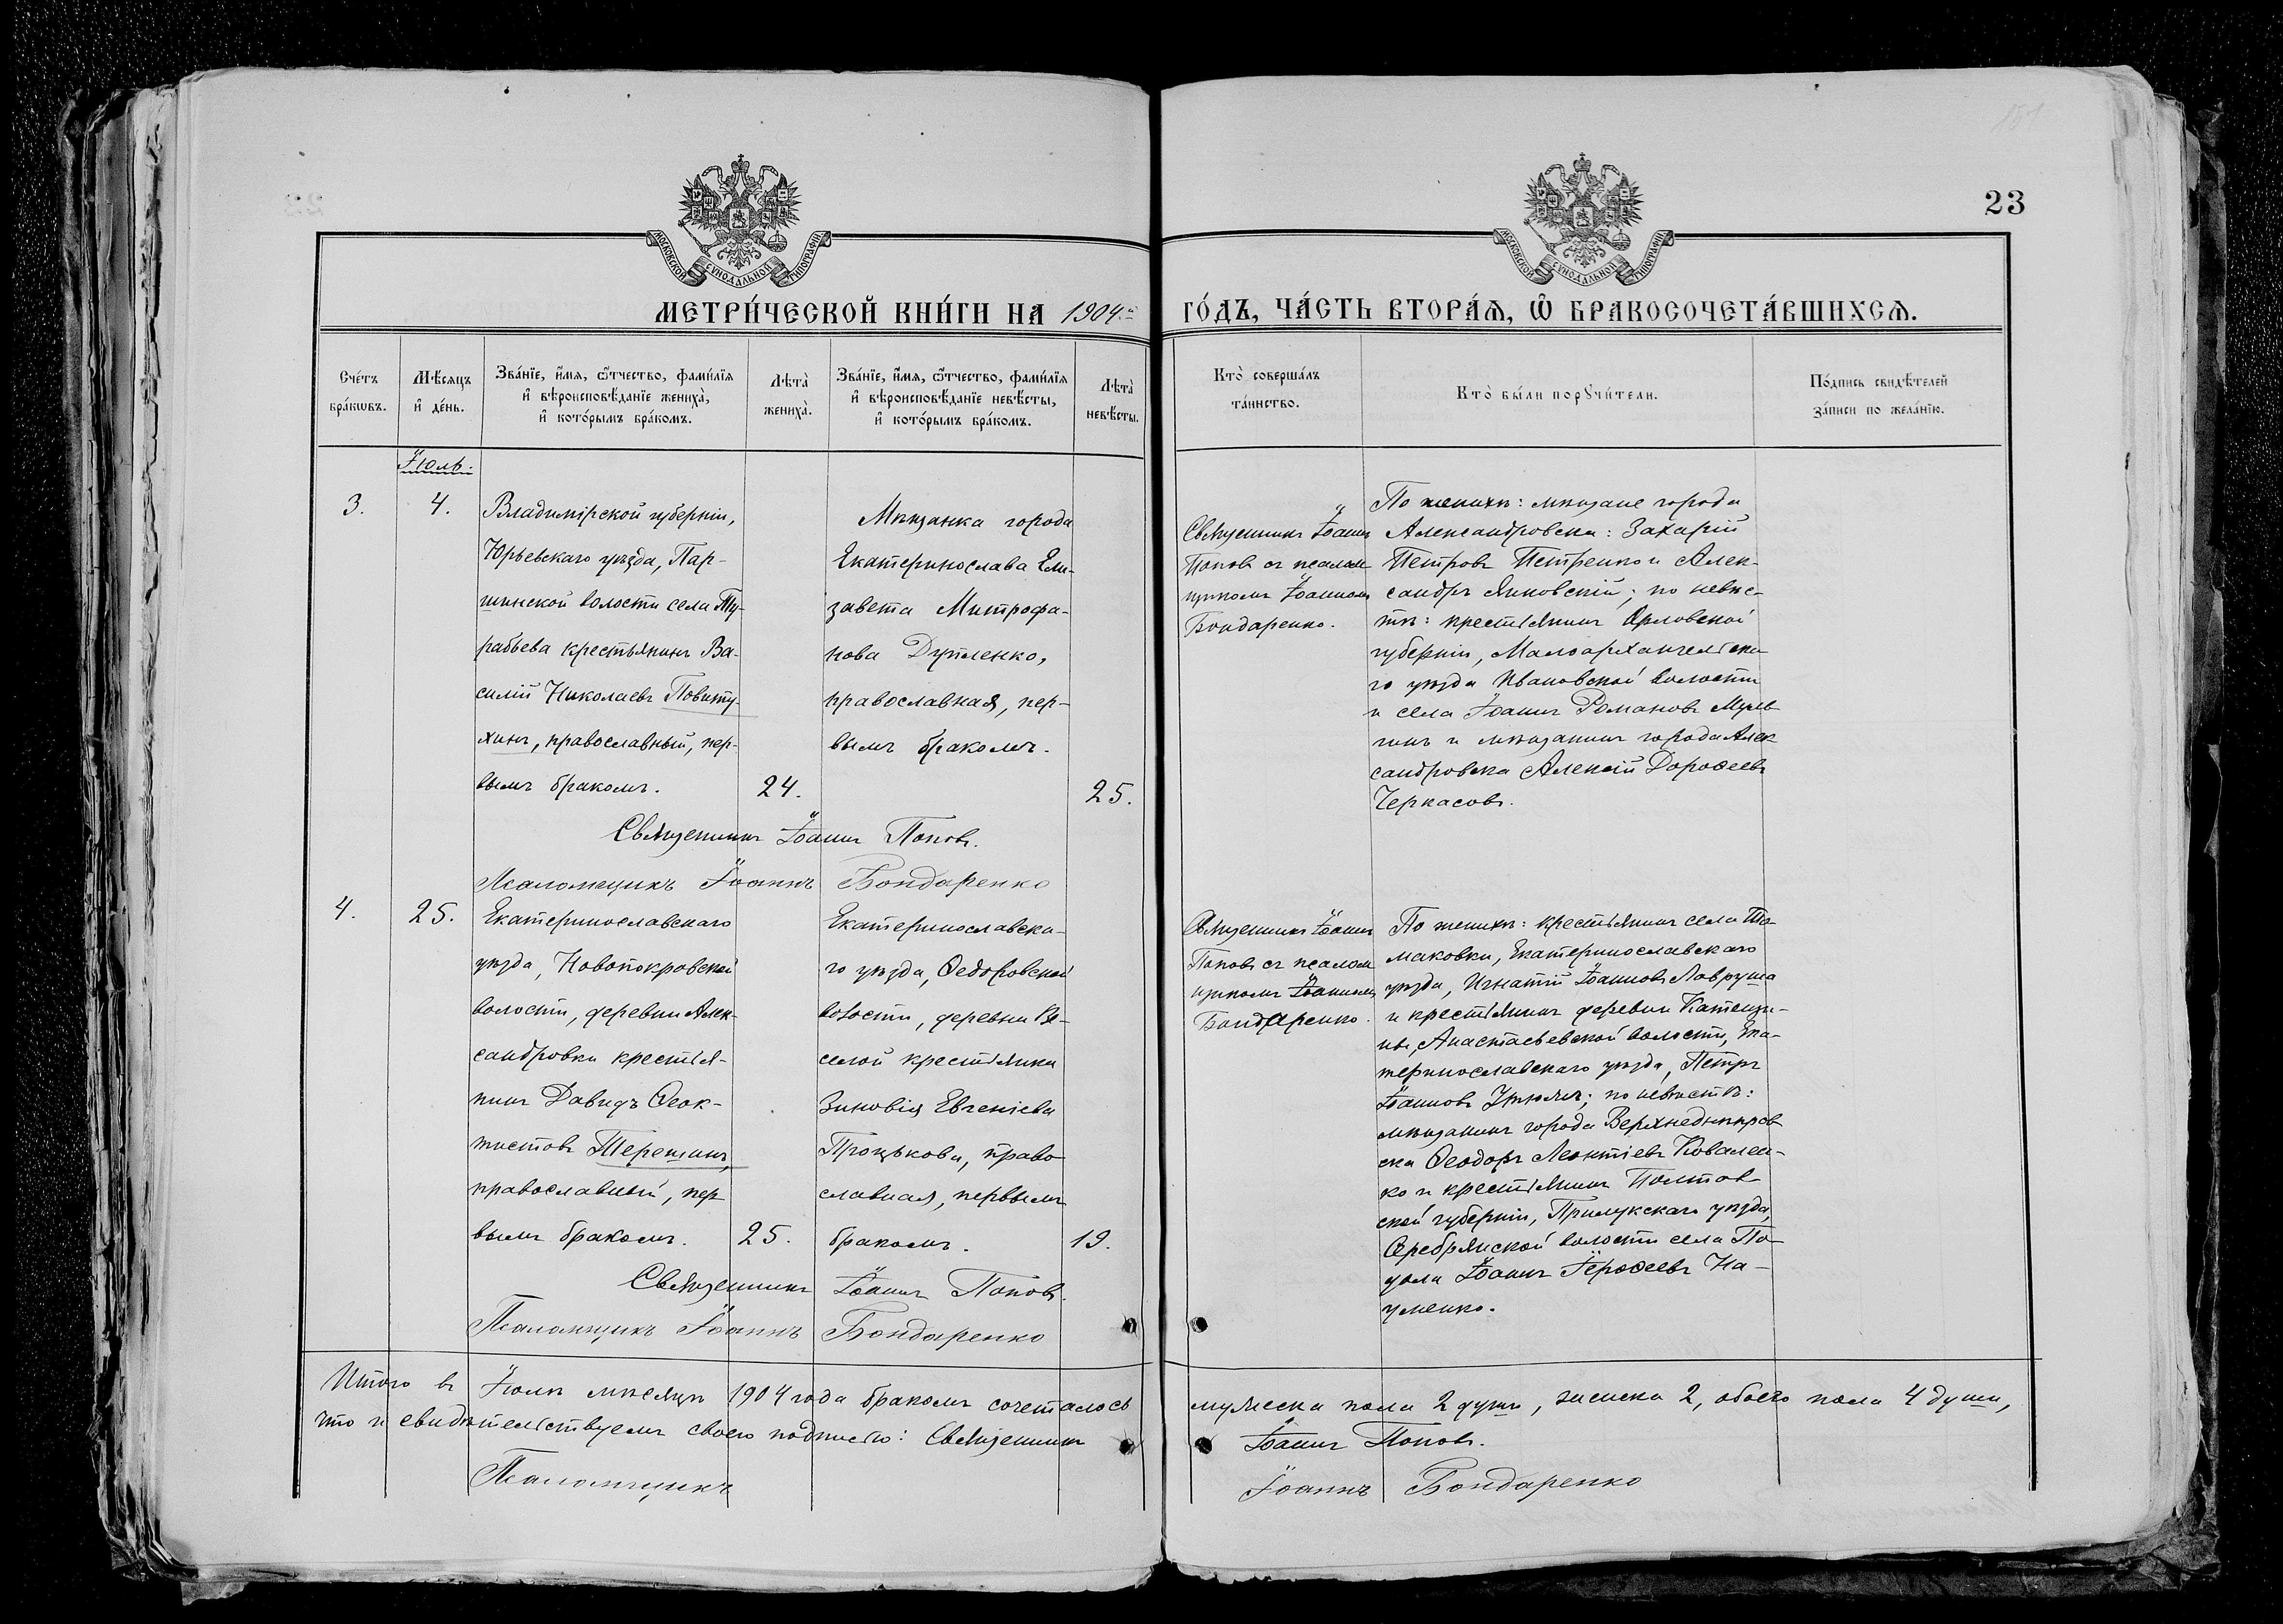 23
МОСКОВСКОЙ СѴНОДАЛЬНОЙ ТИПОГРАФІИ
МОСКОВСКОЙ СѴНОДАЛЬНОЙ ТИПОГРАФІИ
МЕТРИ́ЧЕСКОЙ КНИ́ГИ НА 1904.й ГО́ДЪ, ЧА́СТЬ ВТОРА́Ѧ, Ѽ БРАКОСОЧЕТА́ВШИХСѦ.
Сче́тъ
бра́кѡвъ.
Мѣ́сѧцъ
и҆ де́нь.
Зва́нїе, и҆́мѧ, ѻ҆́тчество, фами́лїѧ
и҆ вѣроисповѣ́данїе жениха̀,
и҆ кото́рымъ бра́комъ.
Лѣта̀
жениха̀.
Зва́нїе, и҆́мѧ, ѻ҆́тчество, фами́лїѧ
и҆ вѣроисповѣ́данїе невѣ́сты,
и҆ кото́рымъ бра́комъ.
Лѣта̀
невѣ́сты.
Кто̀ соверша́лъ
та́инство.
Кто̀ бы́ли порꙋчи́тели.
По́дпись свидѣ́телей
за́писи по жела́нїю.
Іюль.
3.
4.
Владимірской губерніи,
Юрьевскаго уѣзда, Пар-
шинской волости села Ту-
рабьева крестьянинъ Ва-
силій Николаевъ Повиту-
хинъ, православный, пер-
вымъ бракомъ.
24.
Мѣщанка города
Екатеринослава Ели-
завета Митрофа-
нова Дупленко,
православная, пер-
вымъ бракомъ.
25.
Священникъ Іоаннъ
Поповъ съ псалом-
щикомъ Іоанномъ
Бондаренко.
По женихѣ: мѣщане города
Александровска: Захарій
Петровъ Петренко и Алек-
сандръ Яновскій; по невѣс-
тѣ: крестьянинъ Орловской
губерніи, Малоархангельска-
го уѣзда Ивановской волости
и села Іоаннъ Романовъ
и мѣщанинъ города Алек-
сандровска Алексій Дороѳеевъ
Черкасовъ.
Священникъ Іоаннъ Поповъ.
Псаломщикъ Іоаннъ Бондаренко
4.
25.
Екатеринославскаго
уѣзда, Новопокровской
волости, деревни Алек-
сандровки крестья-
нинъ Давидъ Ѳеок-
тистовъ Терешинъ,
православный, пер-
вымъ бракомъ.
25.
Екатеринославска-
го уѣзда, Ѳедоровской
волости, деревни Ве-
селой крестьянка
Зиновія Евгеніева
Процькова, право-
славная, первымъ
бракомъ.
19.
Священникъ Іоаннъ
Поповъ съ псалом-
щикомъ Іоанномъ
Бондаренко.
По женихѣ: крестьянинъ села То-
маковки, Екатеринославскаго
уѣзда, Игнатій Іоанновъ Лавруша
и крестьянинъ деревни
Анастасьевской волости, Ека-
теринославскаго уѣзда, Петръ
Іоанновъ по невѣстѣ:
мѣщанинъ города Верхнеднѣпров-
ска Ѳеодоръ Леонтіевъ Ковален-
ко и крестьянинъ Полтав-
ской губерніи, Прилукскаго уѣзда,
Серебрянской волости села По-
дола Іоаннъ Іероѳеевъ На-
уменко.
Священникъ Іоаннъ Поповъ.
Псаломщикъ Іоаннъ Бондаренко
Итого въ Іюлѣ мѣсяцѣ 1904 года бракомъ сочеталось мужеска пола 2 души, женска 2, обоего пола 4 души,
что и свидѣтельствуемъ своею подписью: Священникъ Іоаннъ Поповъ.
Псаломщикъ Іоаннъ Бондаренко